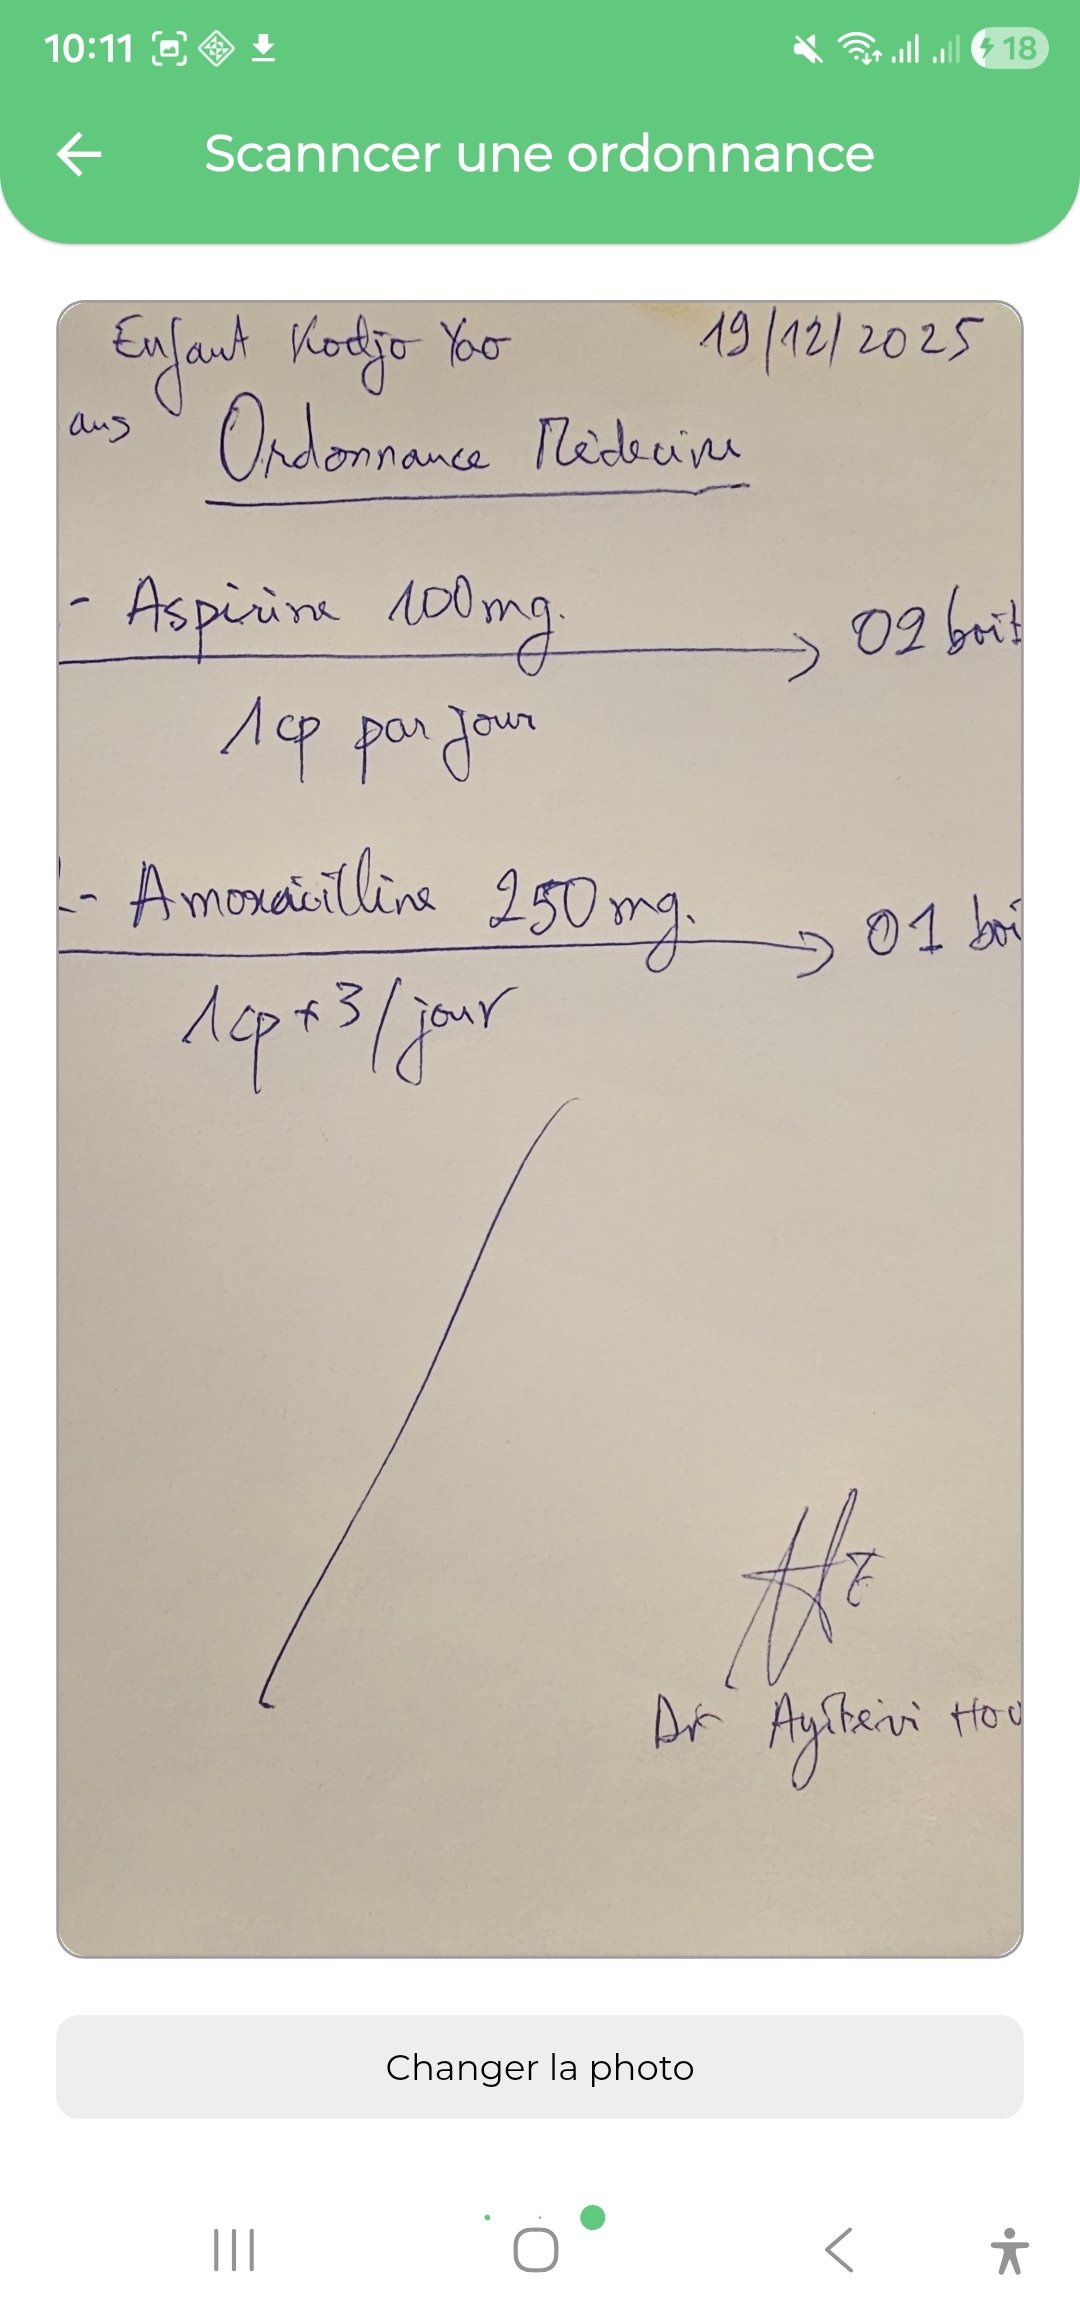 10:11
18
Scanncer une ordonnance
Enfant Kodjo Yao 19/12/2025
ans
Ordonnance Médecine
- Aspirine 100mg. 02 boit
1cp par jour
- Amoxicilline 250mg. 01 boi
1cp x 3/jour
Dr Ayitevi Hou
Changer la photo